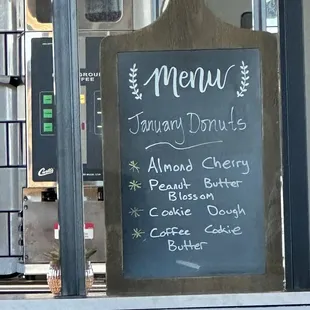 GROUND
COFFEE
Curtis
Menu
January Donuts
Almond Cherry
Peanut Butter
Blossom
Cookie Dough
Coffee Cookie
Butter